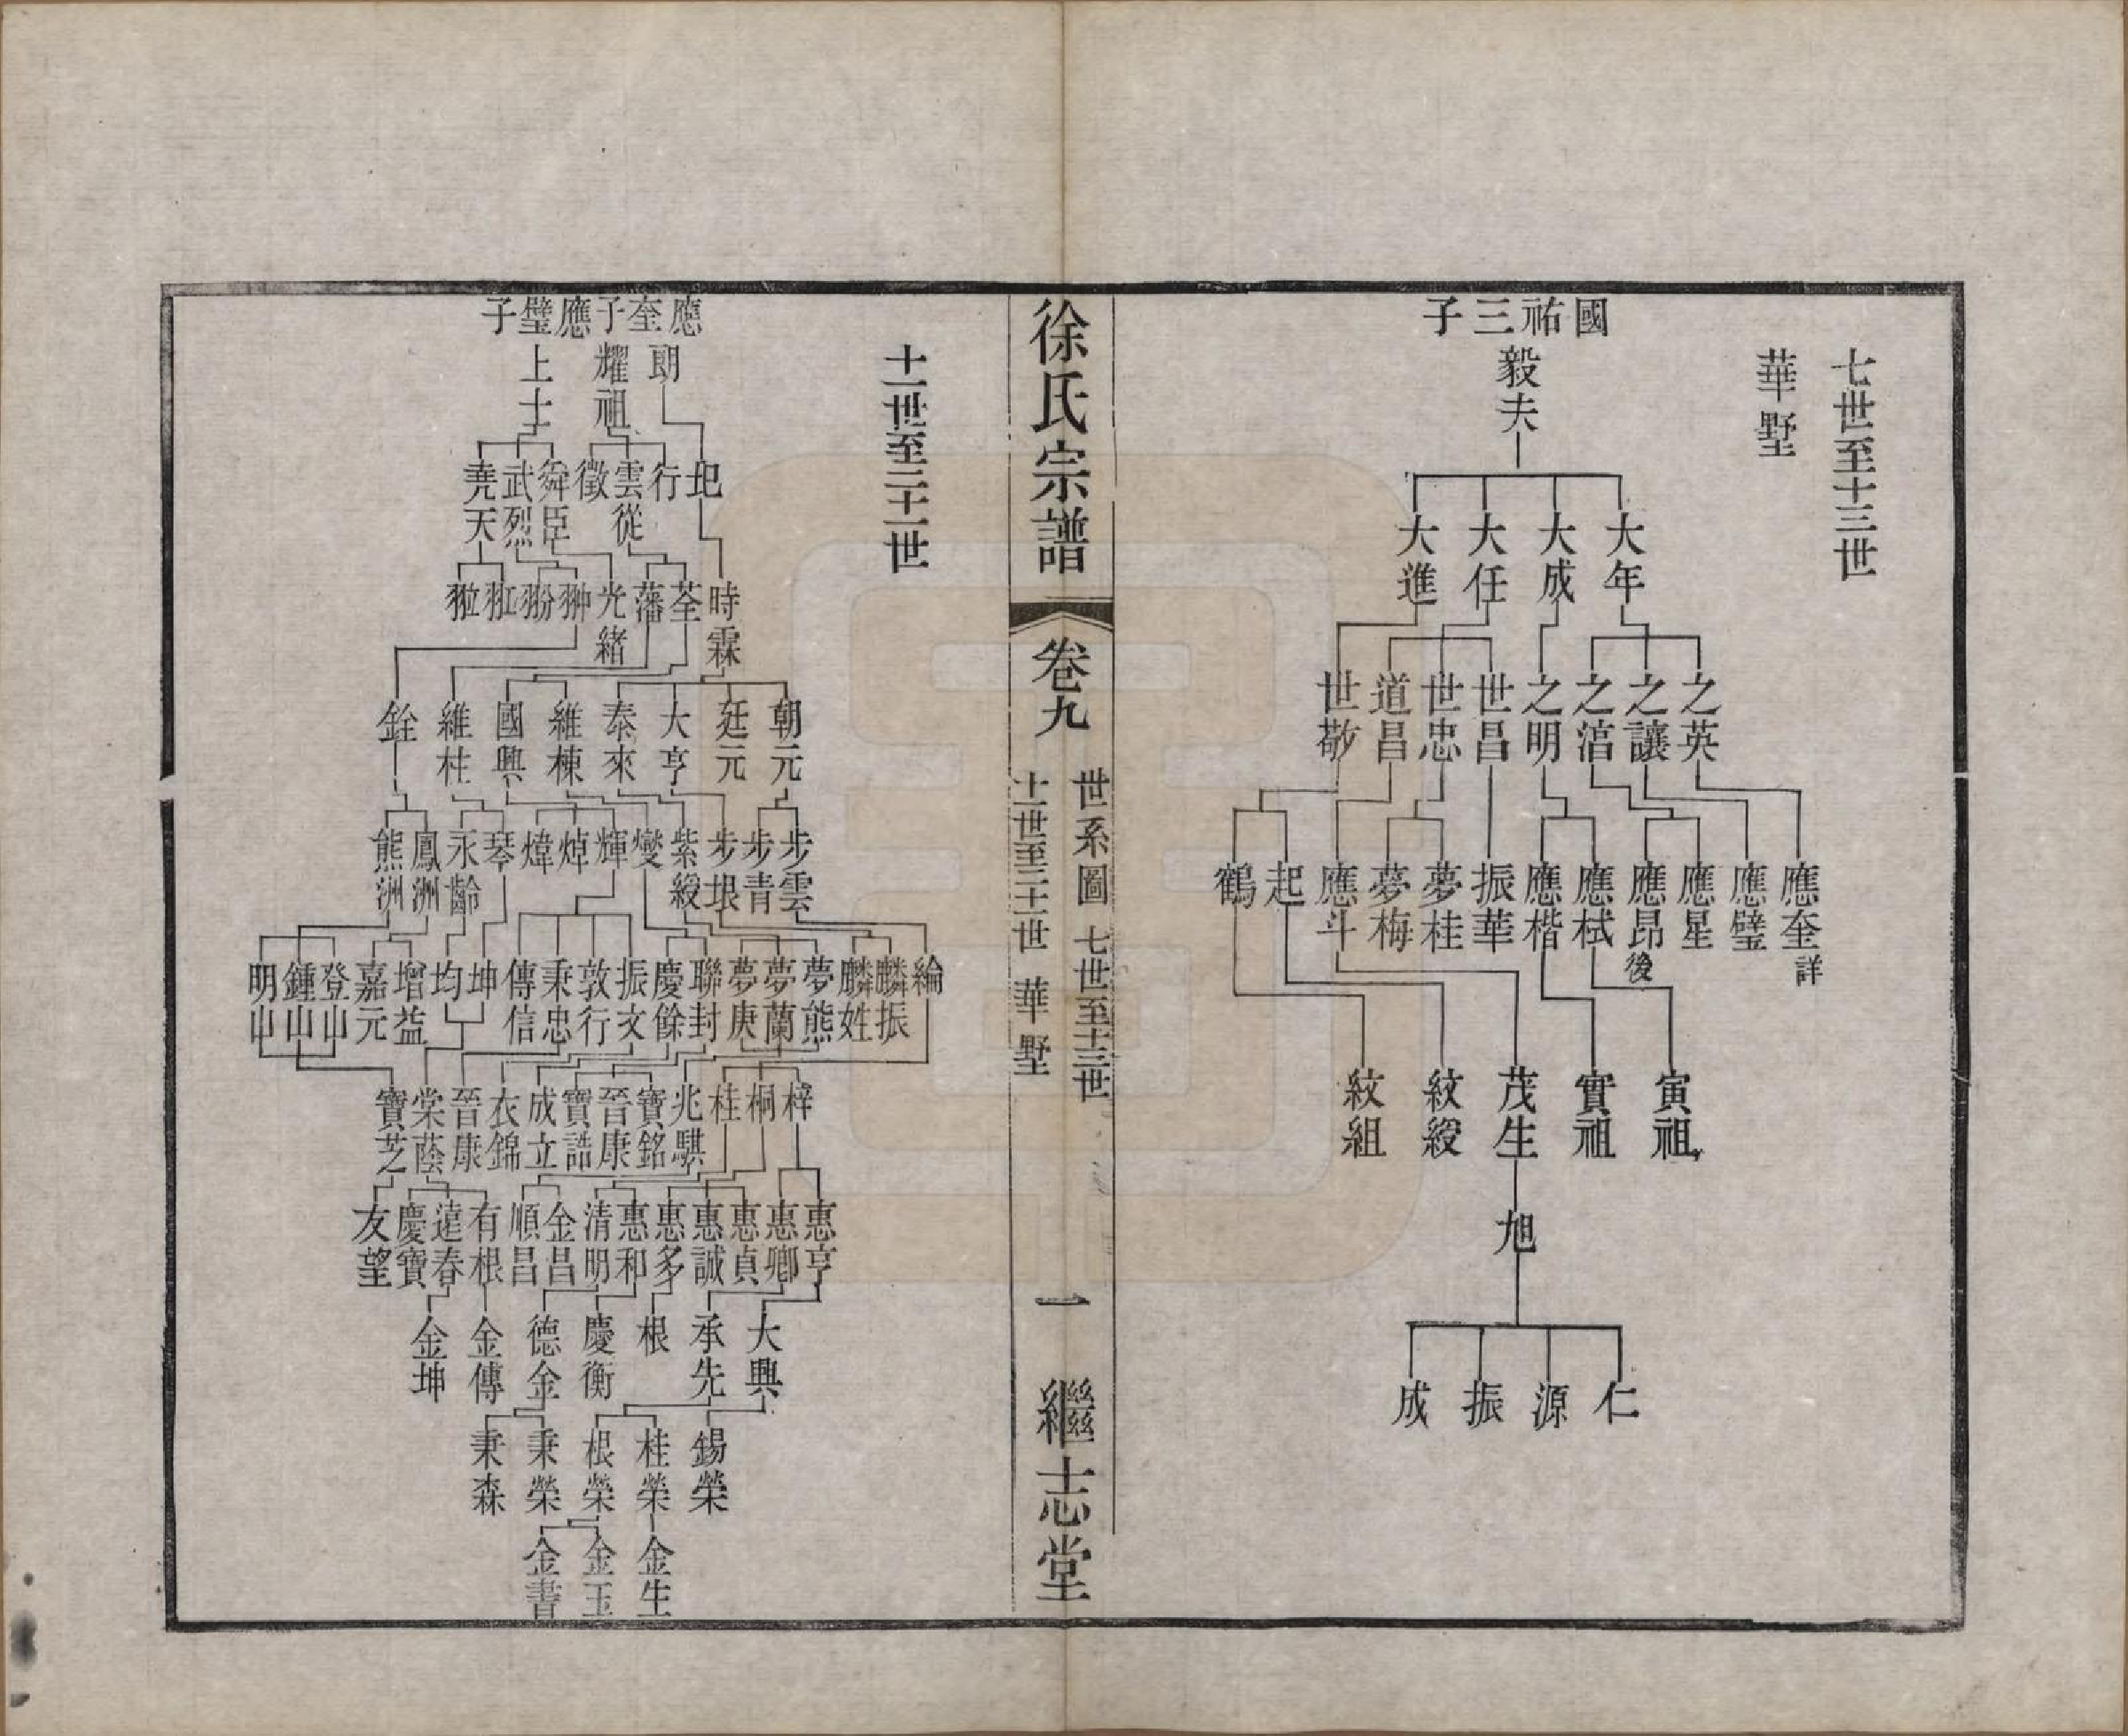 七世至十三世
華墅
國祐三子
毅夫
大年 大成 大任 大進
之英 之讓 之㳷 之明 世昌 世忠 道昌 世敬
應奎 應璧 應星 應昂 應栻 應楷 振華 夢桂 夢梅 應斗 起 鶴
詳後
寅祖 實祖 茂生 紋綬 紋組
旭
仁 源 振 成
徐氏宗譜
卷九
世系圖 七世至十三世
十一世至二十一世 華墅
一
繼志堂
十一世至二十一世
應奎子 應璧子
朗 耀祖 上士
圯 行 雲從 徵 舜臣 武烈 堯天
時霖 荃 藩 光緒 翀 翂 𦐌 翋
朝元 廷元 大亨 泰來 維棟 國興 維柱 銓
步雲 步青 步垠 紫綬 燮 輝 焯 煒 琴 永齡 鳳洲 熊洲
綸 麟振 麟姓 夢熊 夢蘭 夢庚 聯封 慶餘 振文 敦行 秉忠 傳信 坤 均 增益 嘉元 登山 鍾山 明山
梓 桐 桂 兆騏 寶銘 晉康 寶誥 成立 衣錦 晉康 棠蔭 寶芝
惠亨 惠卿 惠貞 惠誠 惠多 惠和 清明 金昌 順昌 有根 蓬春 慶寶 友望
大興 承先 根 慶衡 德金 金傳 金坤
錫榮 桂榮 根榮 秉榮 秉森
金生 金玉 金書